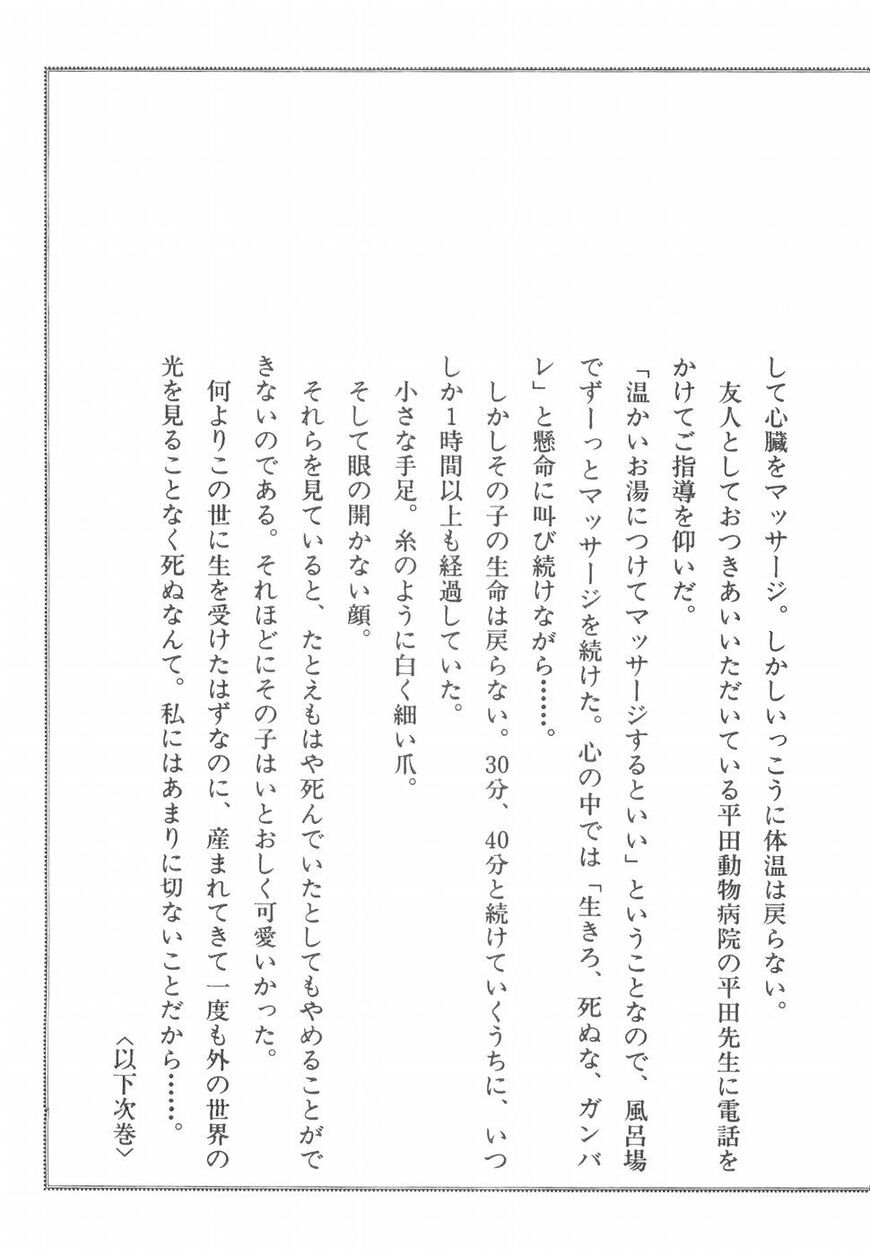 して心臓をマッサージ。しかしいっこうに体温は戻らない。
友人としておつきあいいただいている平田動物病院の平田先生に電話を
かけてご指導を仰いだ。
「温かいお湯につけてマッサージするといい」ということなので、風呂場
でずーっとマッサージを続けた。心の中では「生きろ、死ぬな、ガンバ
レ」と懸命に叫び続けながら……。
しかしその子の生命は戻らない。30分、40分と続けていくうちに、いつ
しか1時間以上も経過していた。
小さな手足。糸のように白く細い爪。
そして眼の開かない顔。
それらを見ていると、たとえもはや死んでいたとしてもやめることがで
きないのである。それほどにその子はいとおしく可愛いかった。
何よりこの世に生を受けたはずなのに、産まれてきて一度も外の世界の
光を見ることなく死ぬなんて。私にはあまりに切ないことだから……。
〈以下次巻〉